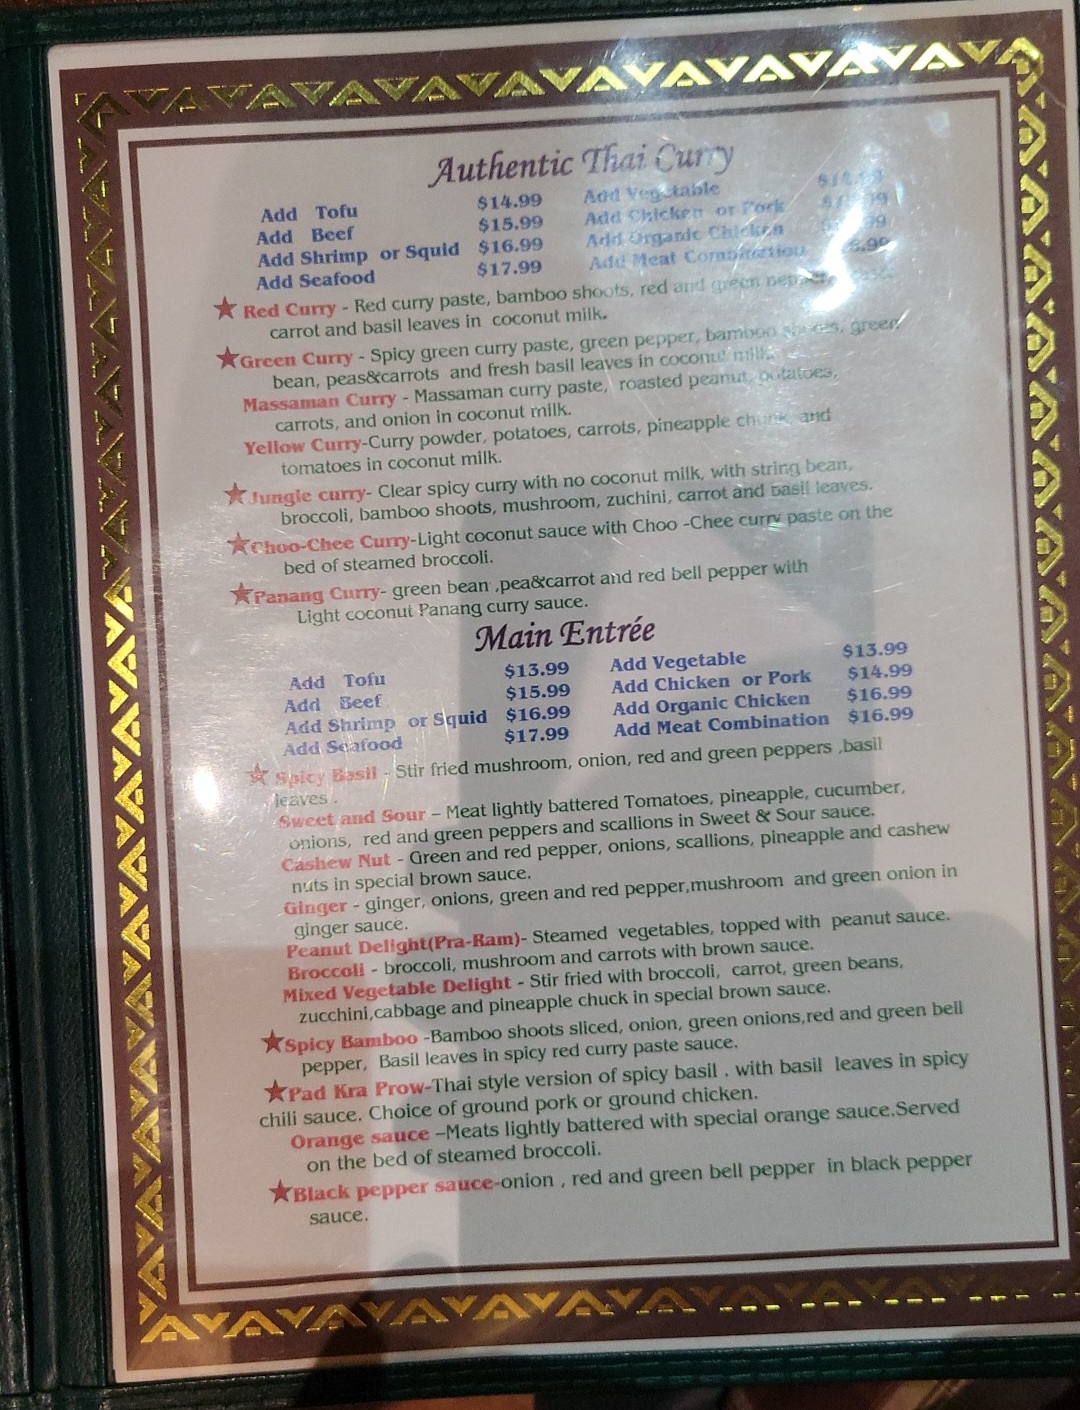 Authentic Thai Curry
Add Tofu $14.99 Add Vegetable
Add Beef $15.99 Add Chicken or Pork
Add Shrimp or Squid $16.99 Add Organic Chicken
Add Seafood $17.99 Add Meat Combination
Red Curry - Red curry paste, bamboo shoots, red and green
carrot and basil leaves in coconut milk.
Green Curry - Spicy green curry paste, green pepper, bamboo shoots, green
bean, peas&carrots and fresh basil leaves in coconut milk.
Massaman Curry - Massaman curry paste, roasted peanut, potatoes,
carrots, and onion in coconut milk.
Yellow Curry-Curry powder, potatoes, carrots, pineapple chunk and
tomatoes in coconut milk.
Jungle curry- Clear spicy curry with no coconut milk, with string bean,
broccoli, bamboo shoots, mushroom, zuchini, carrot and basil leaves.
Choo-Chee Curry-Light coconut sauce with Choo -Chee curry paste on the
bed of steamed broccoli.
Panang Curry- green bean ,pea&carrot and red bell pepper with
Light coconut Panang curry sauce.
Main Entrée
Add Tofu $13.99 Add Vegetable $13.99
Add Beef $15.99 Add Chicken or Pork $14.99
Add Shrimp or Squid $16.99 Add Organic Chicken $16.99
Add Seafood $17.99 Add Meat Combination $16.99
Spicy Basil - Stir fried mushroom, onion, red and green peppers ,basil
leaves .
Sweet and Sour – Meat lightly battered Tomatoes, pineapple, cucumber,
onions, red and green peppers and scallions in Sweet & Sour sauce.
Cashew Nut - Green and red pepper, onions, scallions, pineapple and cashew
nuts in special brown sauce.
Ginger - ginger, onions, green and red pepper,mushroom and green onion in
ginger sauce.
Peanut Delight(Pra-Ram)- Steamed vegetables, topped with peanut sauce.
Broccoli - broccoli, mushroom and carrots with brown sauce.
Mixed Vegetable Delight - Stir fried with broccoli, carrot, green beans,
zucchini,cabbage and pineapple chuck in special brown sauce.
Spicy Bamboo -Bamboo shoots sliced, onion, green onions,red and green bell
pepper, Basil leaves in spicy red curry paste sauce.
Pad Kra Prow-Thai style version of spicy basil . with basil leaves in spicy
chili sauce. Choice of ground pork or ground chicken.
Orange sauce –Meats lightly battered with special orange sauce.Served
on the bed of steamed broccoli.
Black pepper sauce-onion , red and green bell pepper in black pepper
sauce.